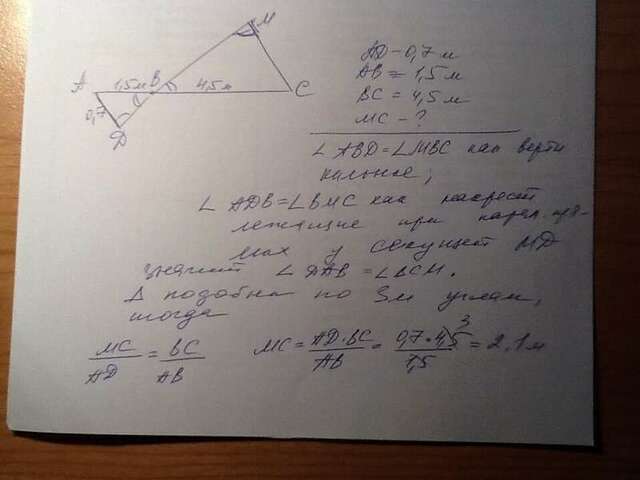 M
A 1,5м B 4,5м C
0,7
D
AD - 0,7 м
AB = 1,5 м
BC = 4,5 м
MC - ?
∠ABD = ∠MBC как верти
кальные;
∠ADB = ∠BMC как накрест
лежащие при парал. пря-
мых у секущей MD
значит ∠DAB = ∠BCM.
Δ подобны по 3м углам,
тогда
MC/AD = BC/AB MC = AD·BC/AB = 0,7·4,5 3/1,5 = 2,1 м